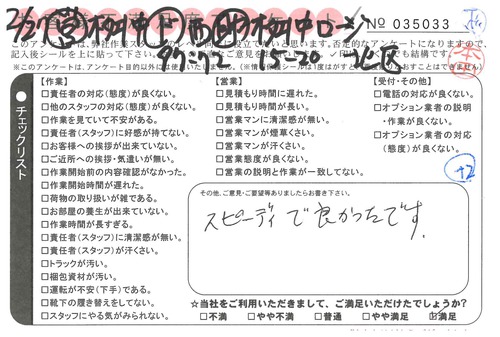 No 035033
このアンケートは、弊社作業スタッフのレベル向上に役立てたいと思います。否定的なアンケートになりますので、
※このアンケートは、アンケート目的以外には使用いたしません。
チェックリスト
【作業】
□責任者の対応(態度)が良くない。
□他のスタッフの対応(態度)が良くない。
□作業を見ていて不安がある。
□責任者(スタッフ)に好感が持てない。
□お客様への挨拶が出来ていない。
□ご近所への挨拶・気遣いが無い。
□作業開始前の内容確認がなかった。
□作業開始時間が遅れた。
□荷物の取り扱いが雑である。
□お部屋の養生が出来ていない。
□作業時間が長すぎる。
□責任者(スタッフ)に清潔感が無い。
□責任者(スタッフ)が汗くさい。
□トラックが汚い。
□梱包資材が汚い。
□運転が不安(下手)である。
□靴下の履き替えをしてない。
□スタッフにやる気がみられない。
【営業】
□見積もり時間に遅れた。
□見積もり時間が長い。
□営業マンに清潔感が無い。
□営業マンが煙草くさい。
□営業マンが汗くさい。
□営業態度が良くない。
□営業の説明と作業が一致してない。
【受付・その他】
□電話の対応が良くない。
□オプション業者の説明
・作業が良くない。
□オプション業者の対応
(態度)が良くない。
+2
その他、ご意見・ご要望等ありましたらお書き下さい。
スピーディで良かったです。
☆当社をご利用いただきまして、ご満足いただけたでしょうか?
□不満 □やや不満 □普通 □やや満足 ☑満足